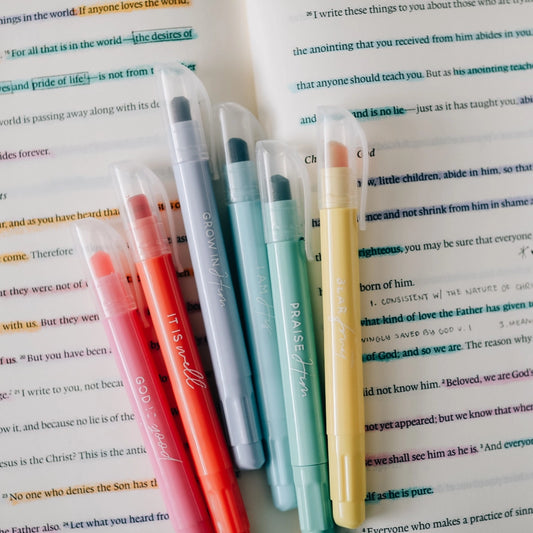 nings in the world. If anyone loves the
15 For all that is in the world—the desires of
yes and pride of life—is not from th
world is passing away along with its de
ides forever.
ts
ar, and as you have heard tha
come. Therefore
that they were not of
us. But they were
with us. But they
of us. 20 But you have been
ge. 21 I write to you, not becau
ow it, and because no lie is of the
Jesus is the Christ? This is the antic
23 No one who denies the Son has th
the Father also. 24 Let what you heard from
26 I write these things to you about those who are tryin
the anointing that you received from him abides in you,
that anyone should teach you. But as his anointing teache
and is no lie—just as it has taught you, abi
Children God
now, little children, abide in him, so that
ence and not shrink from him in shame a
righteous, you may be sure that everyone
born of him.
1. CONSISTENT W/ THE NATURE OF CHR
what kind of love the Father has given to
INGLY SAVED BY GOD V. 1
of God; and so we are. The reason why
did not know him. 2 Beloved, we are God's
not yet appeared; but we know that when
we shall see him as he is. 3 And everyone
self as he is pure.
4 Everyone who makes a practice of sinn
GOD is good
IT IS well
GROW IN Him
I AM His
PRAISE Him